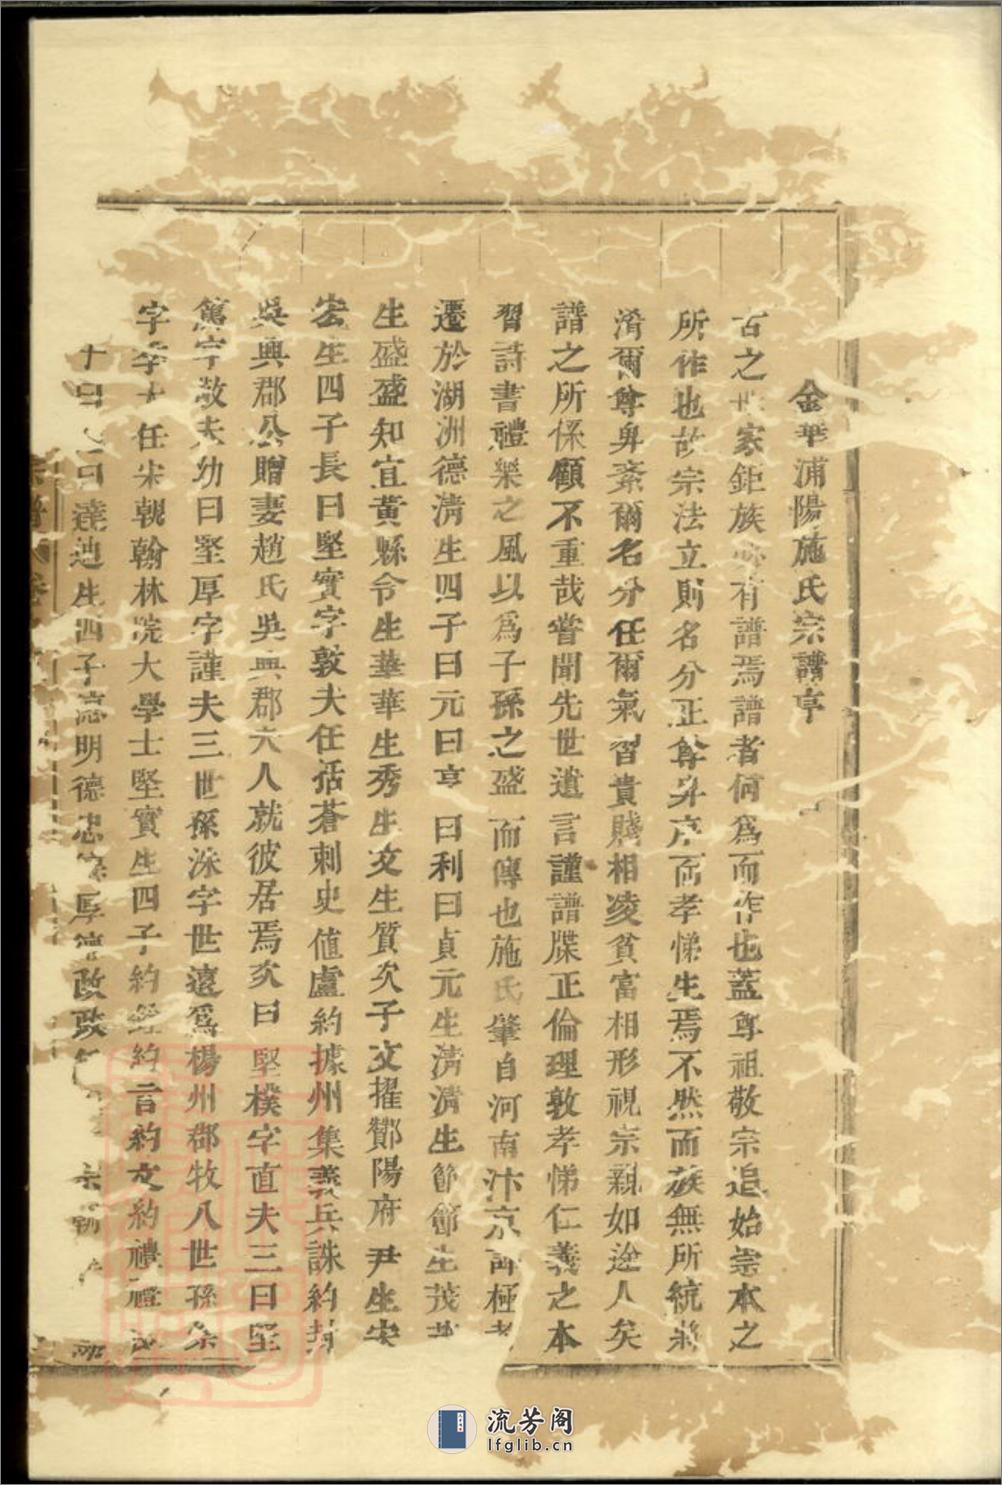 金華浦陽施氏宗譜序
古之世家鉅族必有譜焉譜者何爲而作也蓋尊祖敬宗追始崇本之
所作也故宗法立則名分正尊卑序而孝悌生焉不然而族無所統將
淆爾尊卑紊爾名分任爾氣習貴賤相凌貧富相形視宗親如途人矣
譜之所係顧不重哉嘗聞先世遺言謹譜牒正倫理敦孝悌仁義之本
習詩書禮樂之風以爲子孫之盛而傳也施氏肇自河南汴京
遷於湖洲德清生四子曰元曰亨曰利曰貞元生清清生節節生茂
生盛盛知宜黃縣令生華華生秀生文生質次子文擢酇陽府尹生宏
宏生四子長曰堅實字敦夫任括蒼刺史值盧約據州集義兵誅約封
吳興郡公贈妻趙氏吳興郡夫人就彼居焉次曰堅樸字直夫三曰堅
篤字敬夫幼曰堅厚字謹夫三世孫泳字世遠爲楊州郡牧八世孫
字 任宋朝翰林院大學士堅實生四子約 約言約文約禮禮
曰 曰達迪生四子 明德忠 厚 政政
宗譜 卷
流芳阁
lfglib.cn